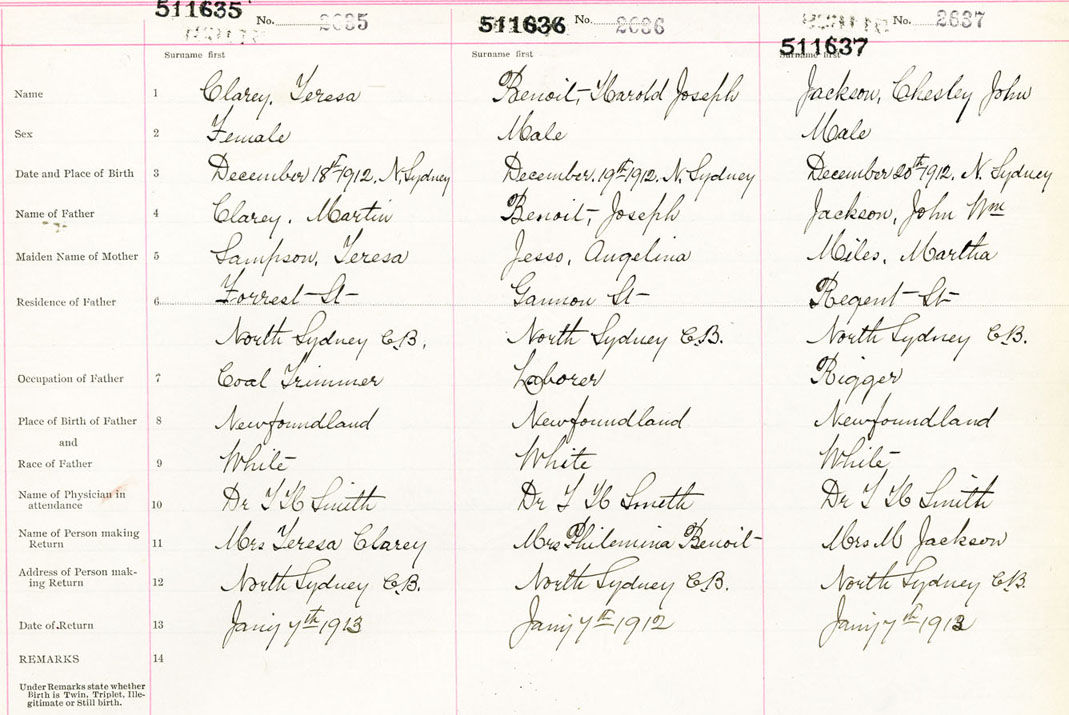 511635 No. 2635 511636 No. 2636 No. 2637
511637
Surname first Surname first Surname first
Name 1 Clarey, Teresa Benoit, Harold Joseph Jackson, Chesley John
Sex 2 Female Male Male
Date and Place of Birth 3 December 18th 1912. N. Sydney December. 19th 1912. N. Sydney December 20th 1912. N. Sydney
Name of Father 4 Clarey. Martin Benoit, Joseph Jackson, John Wm
Maiden Name of Mother 5 Sampson, Teresa Jesso, Angelina Miles, Martha
Residence of Father 6 Forrest St Gannon St Regent St
North Sydney C.B. North Sydney C.B. North Sydney C.B.
Occupation of Father 7 Coal Trimmer Laborer Rigger
Place of Birth of Father 8 Newfoundland Newfoundland Newfoundland
and
Race of Father 9 White White White
Name of Physician in
attendance 10 Dr Smith Dr Smith Dr Smith
Name of Person making
Return 11 Mrs Teresa Clarey Mrs Philemina Benoit Mrs M Jackson
Address of Person mak-
ing Return 12 North Sydney C.B. North Sydney C.B. North Sydney C.B.
Date of Return 13 Jany 7th 1913 Jany 7th 1912 Jany 7th 1913
REMARKS 14
Under Remarks state whether
Birth is Twin, Triplet, Ille-
gitimate or Still birth.